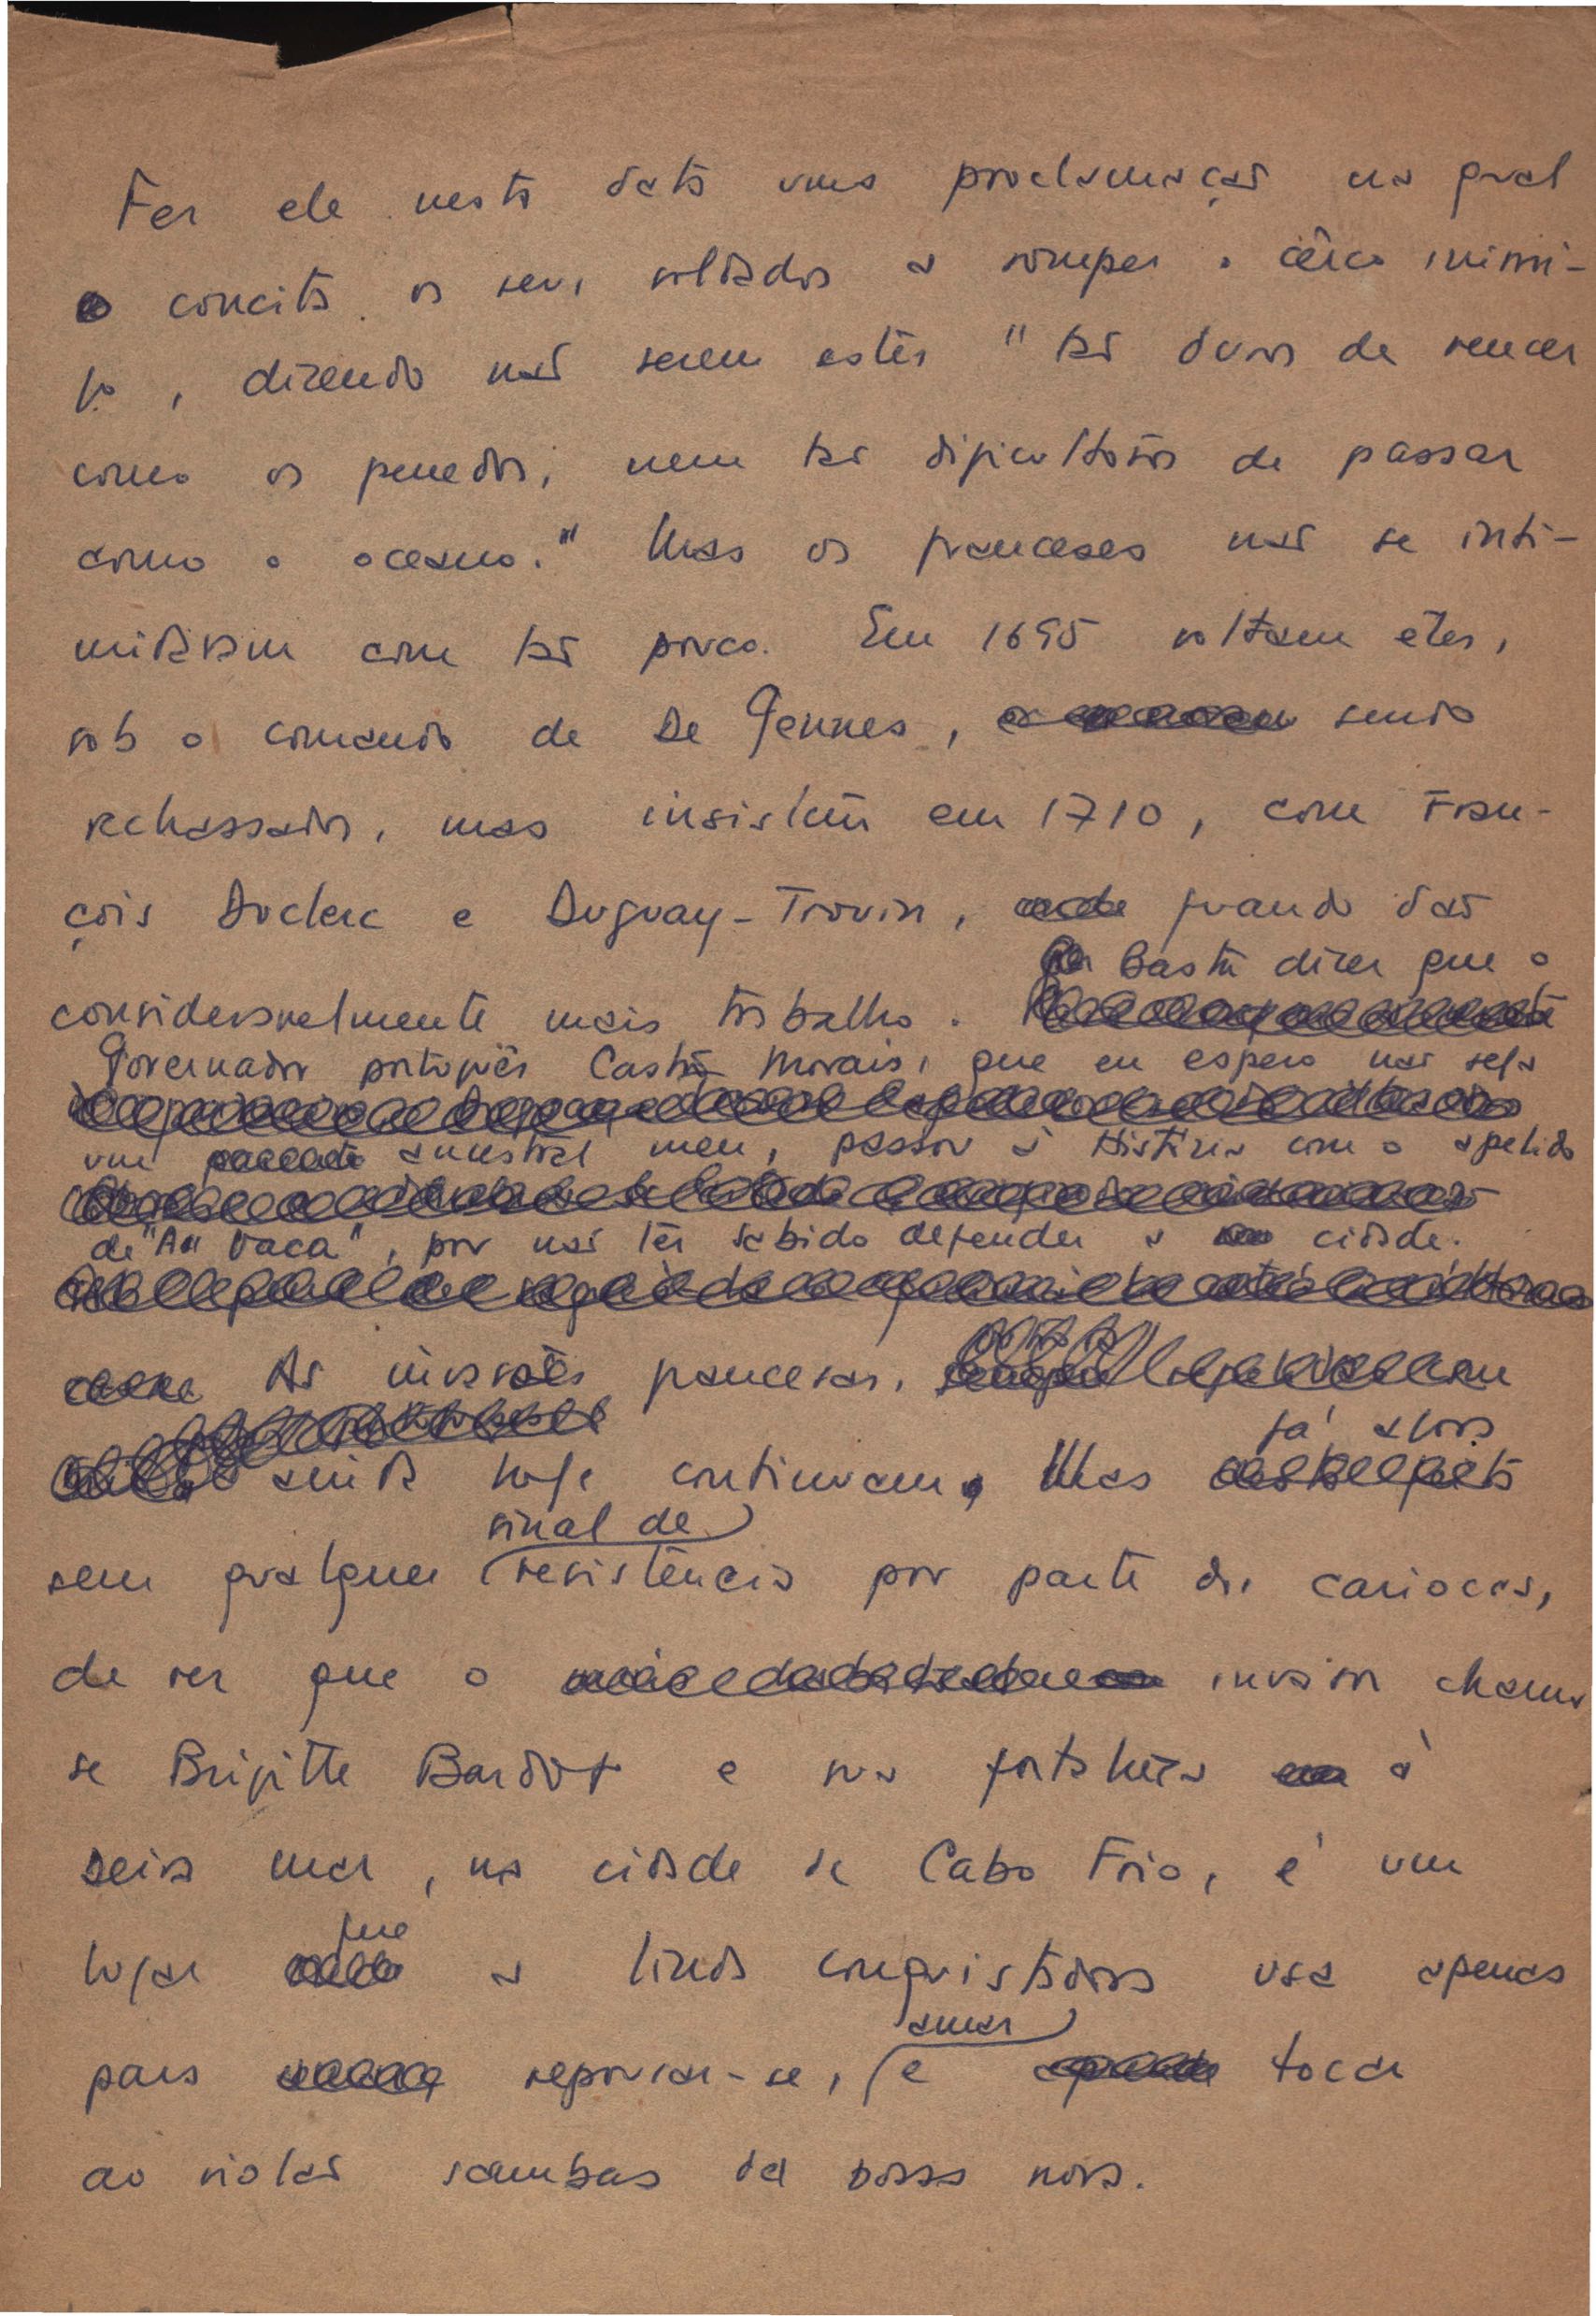 Fez ele nesta data uma proclamação na qual
concita os seus soldados a romper o cêrco inimi-
go, dizendo não serem estes "tão duros de vencer
como os penedos, nem tão dificultosos de passar
como o oceano." Mas os franceses não se inti-
midaram com tão pouco. Em 1695 voltam êles,
sob o comando de De Gennes, sendo
rechassados, mas insistem em 1710, com Fran-
çois Duclerc e Duguay-Trouin, quando dão
Basta dizer que o
consideravelmente mais trabalho.
Governador português Castro Morais, que eu espero não seja
um ancestral meu, passou à História com o apelido
de "A Vaca", por não ter sabido defender a cidade.
As invasões francesas,
já agora
ainda hoje continuam. Mas
sinal de
sem qualquer resistência por parte dos cariocas,
de vez que o invasor chama
se Brigitte Bardot e sua fortaleza à
beira mar, na cidade de Cabo Frio, é um
que
lugar a linda conquistadora usa apenas
amar
para repousar-se, e tocar
ao violão sambas da bossa nova.